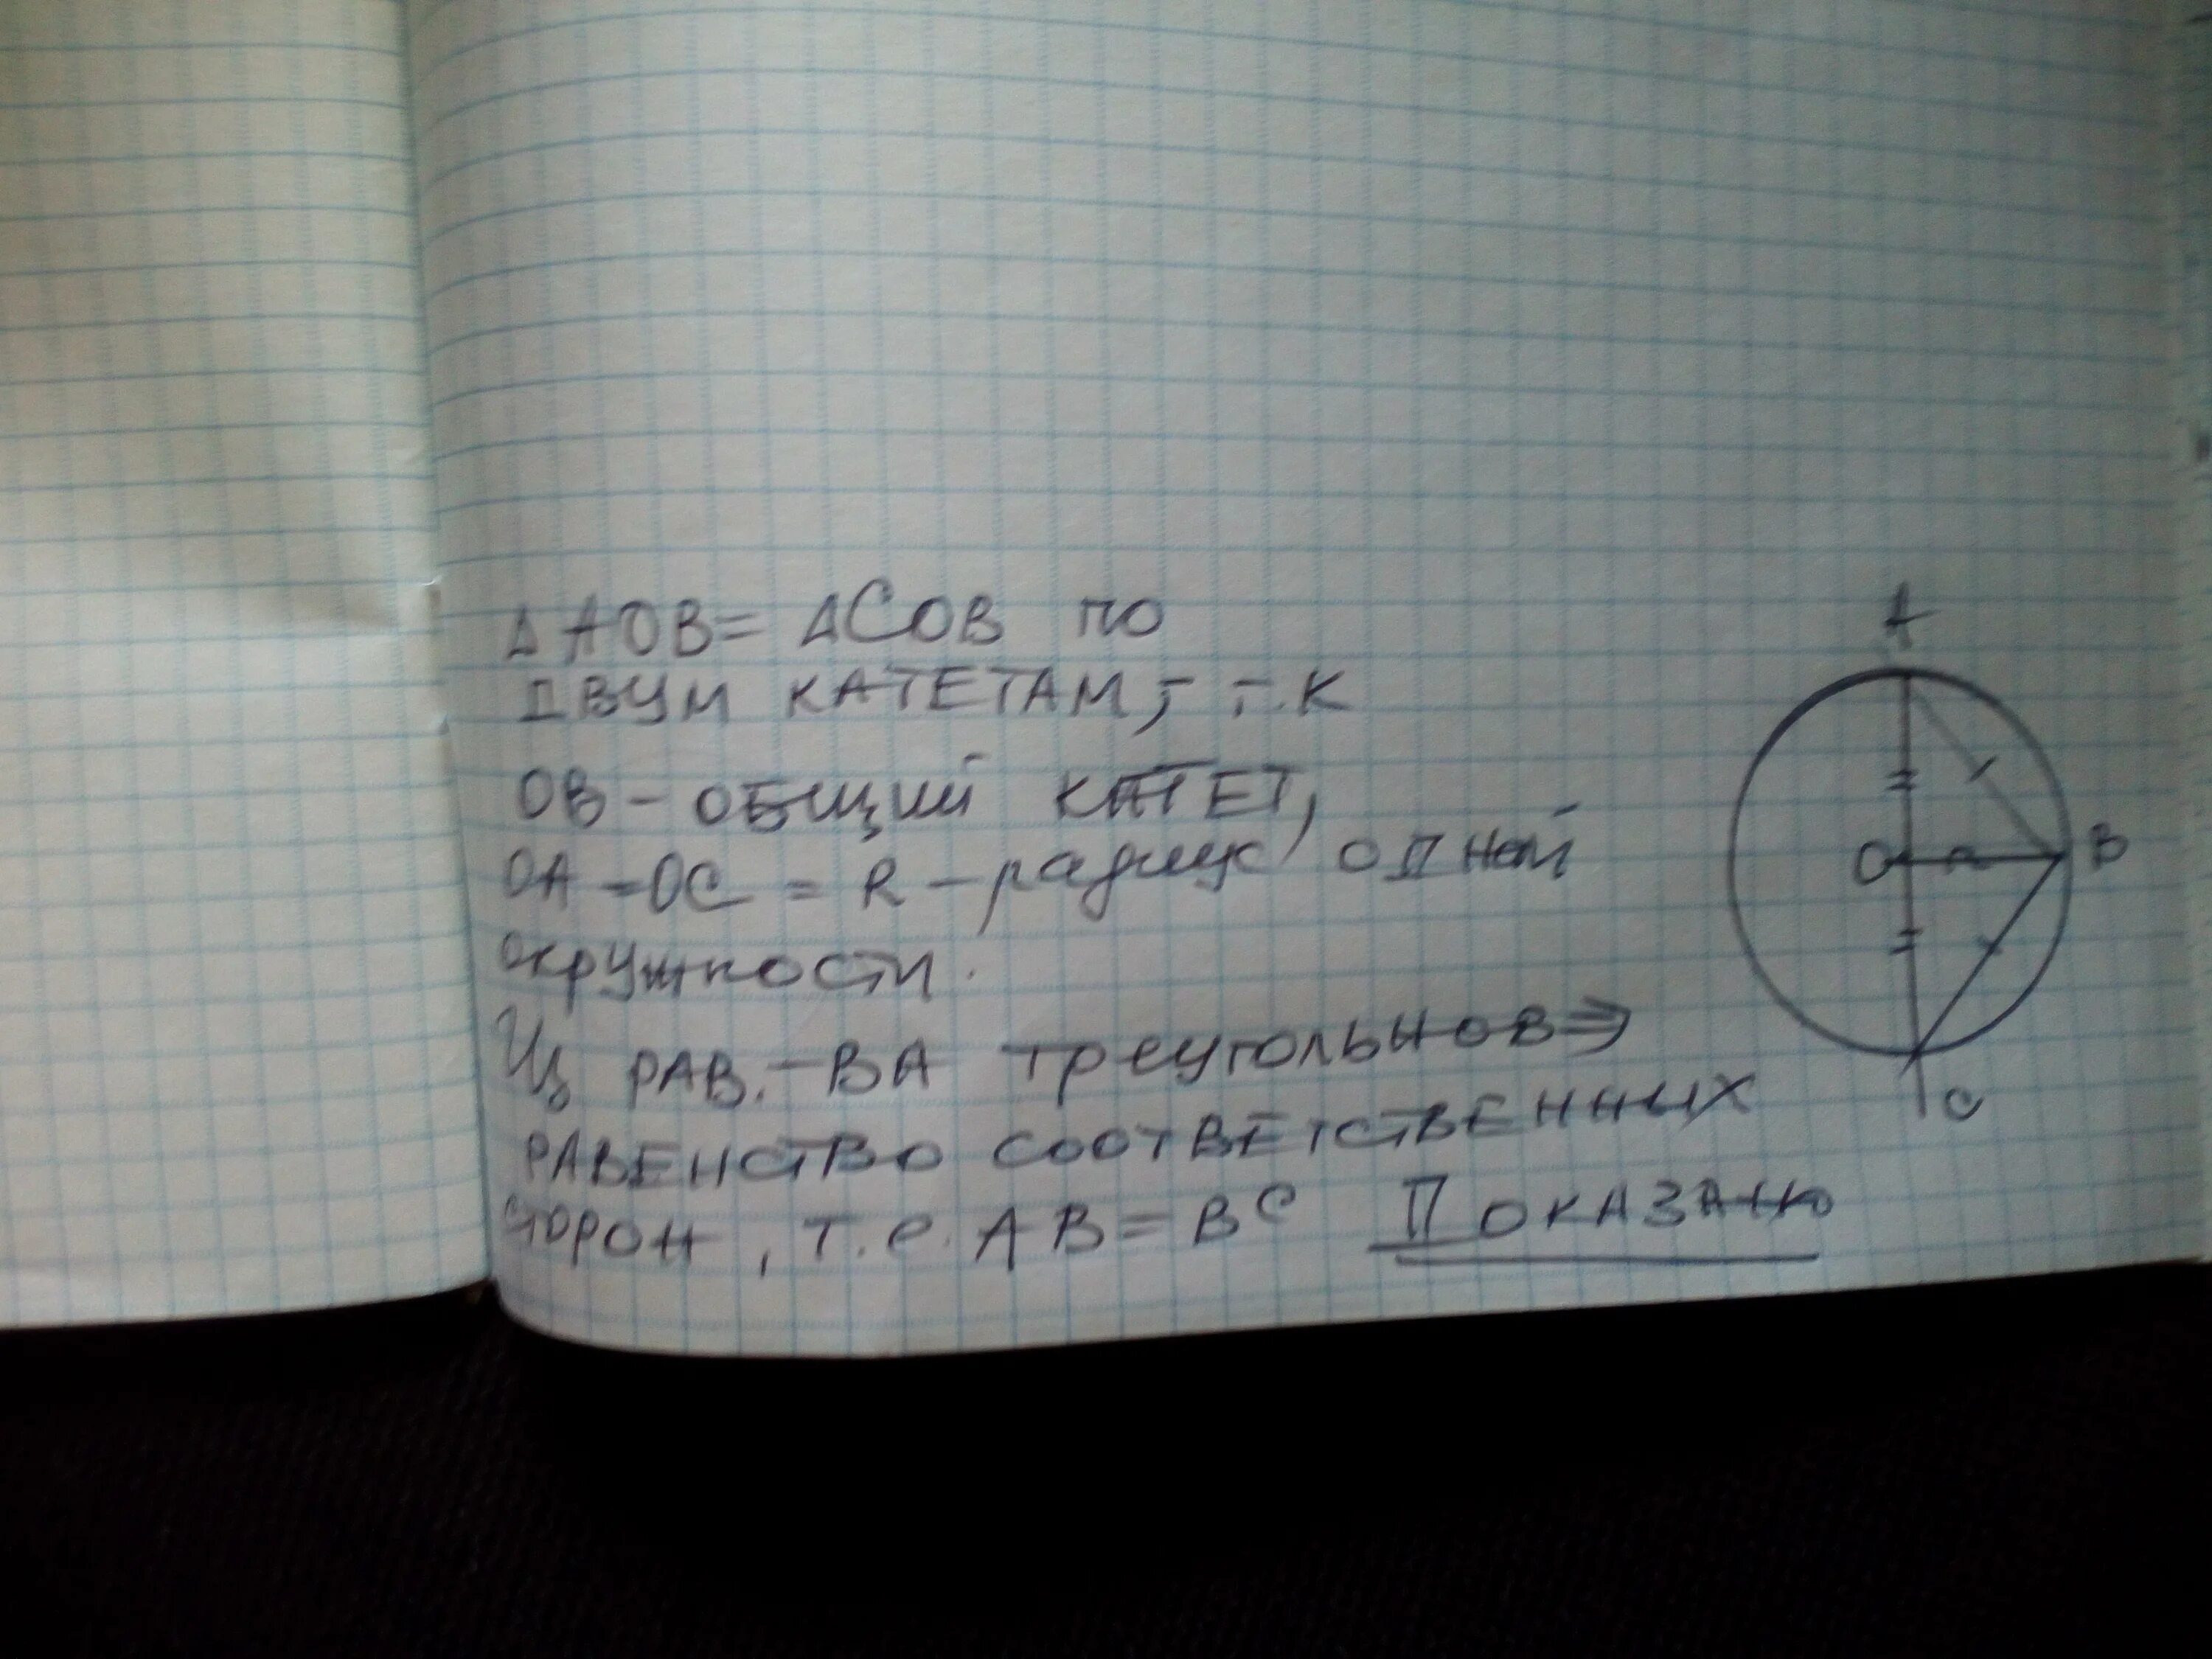 Δ AOB = ΔCOB по
ДВУМ КАТЕТАМ, т.к
OB – ОБЩИЙ КАТЕТ,
OA = OC = R – радиус одной
окружности.
Из РАВ.-ВА треугольнов ⇒
РАВЕНСТВО СООТВЕТСТВЕННЫХ
СТОРОН, т.е. AB = BC ПОКАЗАНО
A
O
B
C